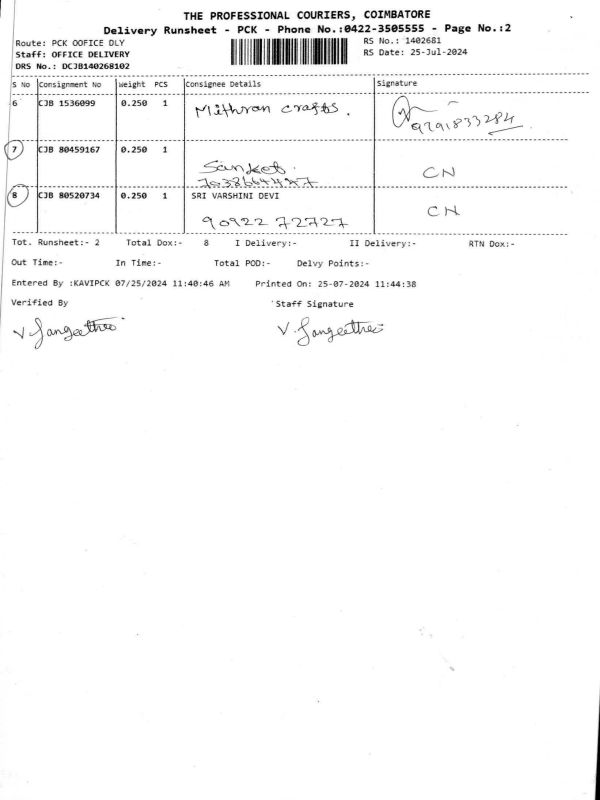 THE PROFESSIONAL COURIERS, COIMBATORE
Delivery Runsheet - PCK - Phone No.:0422-3505555 - Page No.:2
Route: PCK OOFICE DLY
RS No.: 1402681
Staff: OFFICE DELIVERY
RS Date: 25-Jul-2024
DRS No.: DCJB140268102
S No Consignment No Weight PCS Consignee Details Signature
6 CJB 1536099 0.250 1 Mithran crafts.
9791833284
7 CJB 80459167 0.250 1
Sanket. CN
8 CJB 80520734 0.250 1 SRI VARSHINI DEVI
90922 72727 CN
Tot. Runsheet:- 2 Total Dox:- 8 I Delivery:- II Delivery:- RTN Dox:-
Out Time:- In Time:- Total POD:- Delvy Points:-
Entered By :KAVIPCK 07/25/2024 11:40:46 AM Printed On: 25-07-2024 11:44:38
Verified By Staff Signature